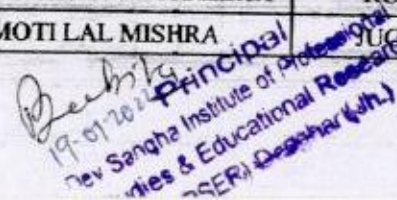 MOTI LAL MISHRA
19-01-2022
Principal
Dev Sangha Institute of Professional
Studies & Educational Research
(DSER) Deoghar (Jh.)